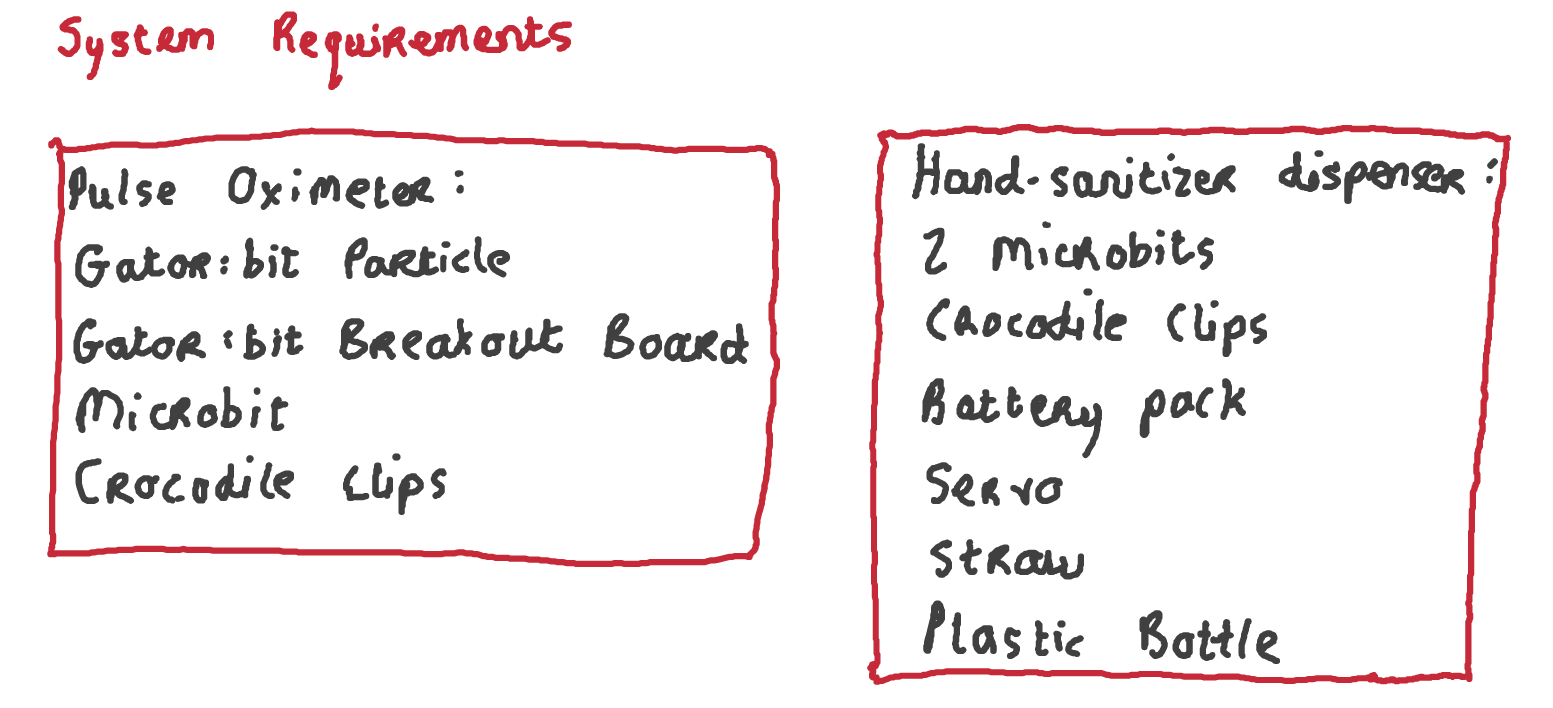 System Requirements
Pulse Oximeter:
Gator:bit Particle
Gator:bit Breakout Board
Microbit
Crocodile Clips
Hand-sanitizer dispenser:
2 Microbits
Crocodile Clips
Battery pack
Servo
Straw
Plastic Bottle